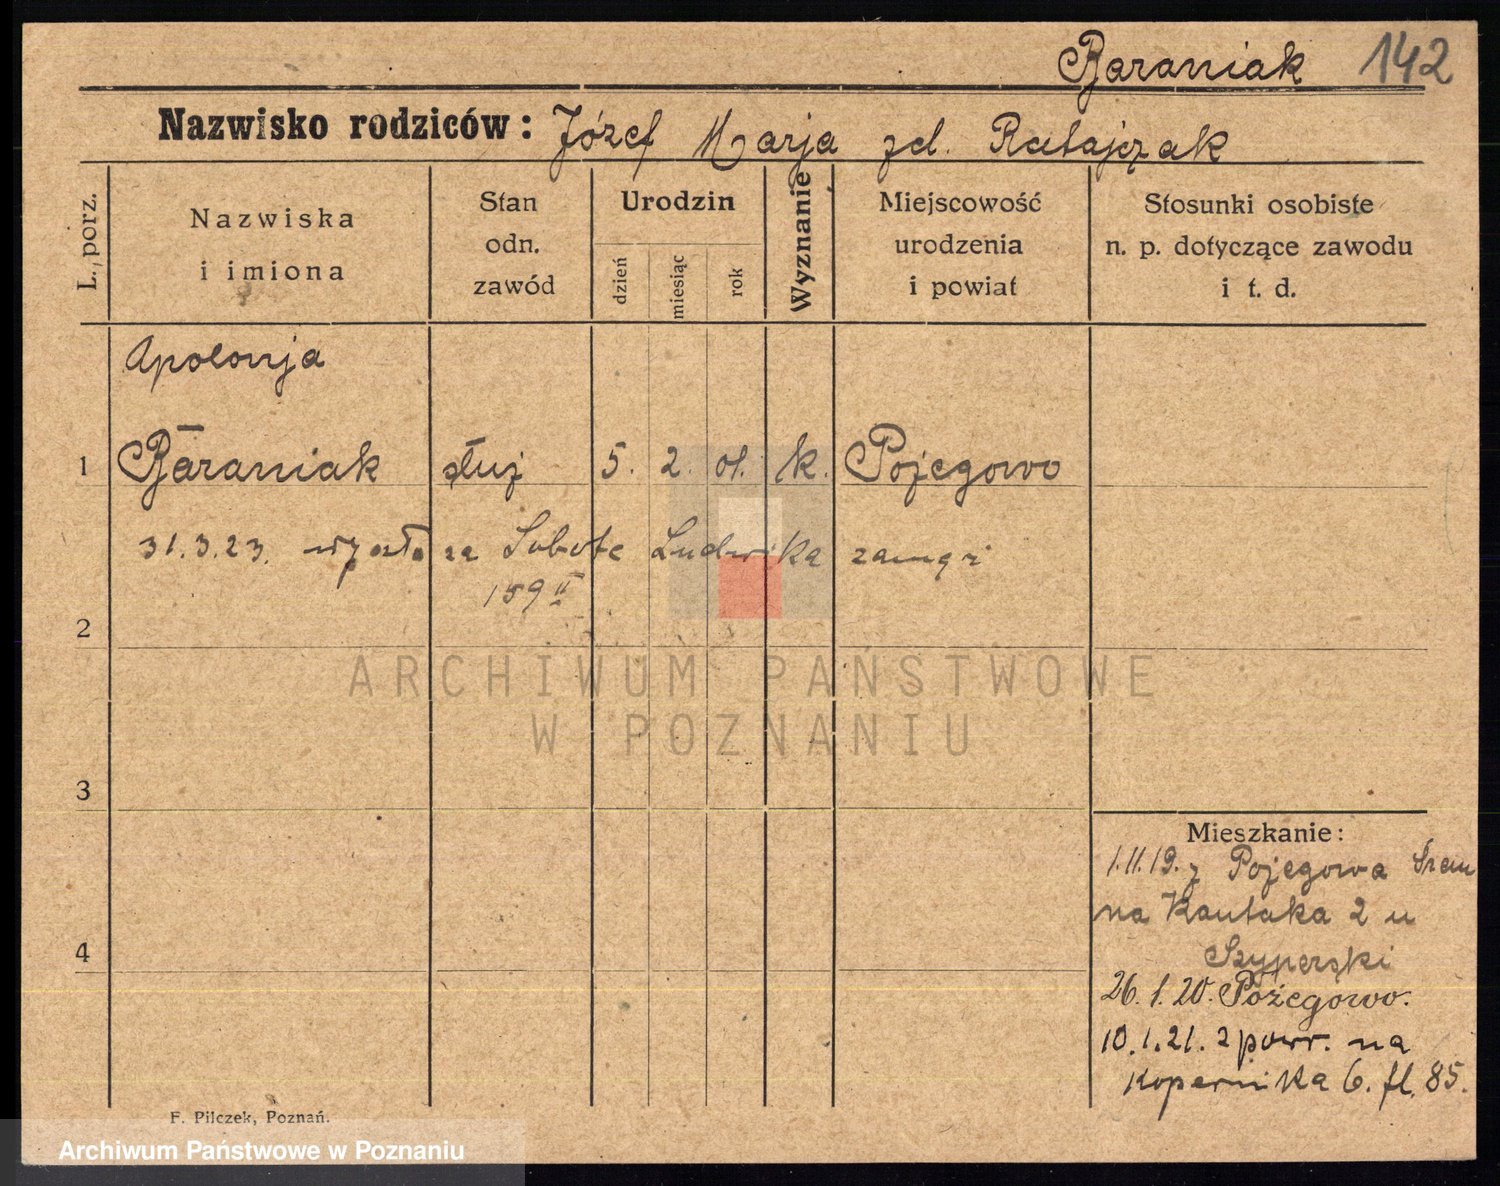 Baraniak 142
Nazwisko rodziców: Józef Marja zd. Ratajczak
L. porz.
Nazwiska
i imiona
Stan
odn.
zawód
Urodzin
dzień
miesiąc
rok
Wyznanie
Miejscowość
urodzenia
i powiat
Stosunki osobiste
n. p. dotyczące zawodu
i t. d.
Apolonja
1 Baraniak służ 5. 2. 01. k. Pojegowo
31.3.23. wyszła za Sobotę Ludwika zamąż
159 II
2
ARCHIWUM PAŃSTWOWE
W POZNANIU
3
Mieszkanie:
1.11.19. z Pojegowa Śrem
na Kantaka 2 u
4 Szyperski
26.1.20. Pożegowo.
10.1.21. z powr. na
Kopernika 6. fl. 85.
F. Pilczek, Poznań.
Archiwum Państwowe w Poznaniu